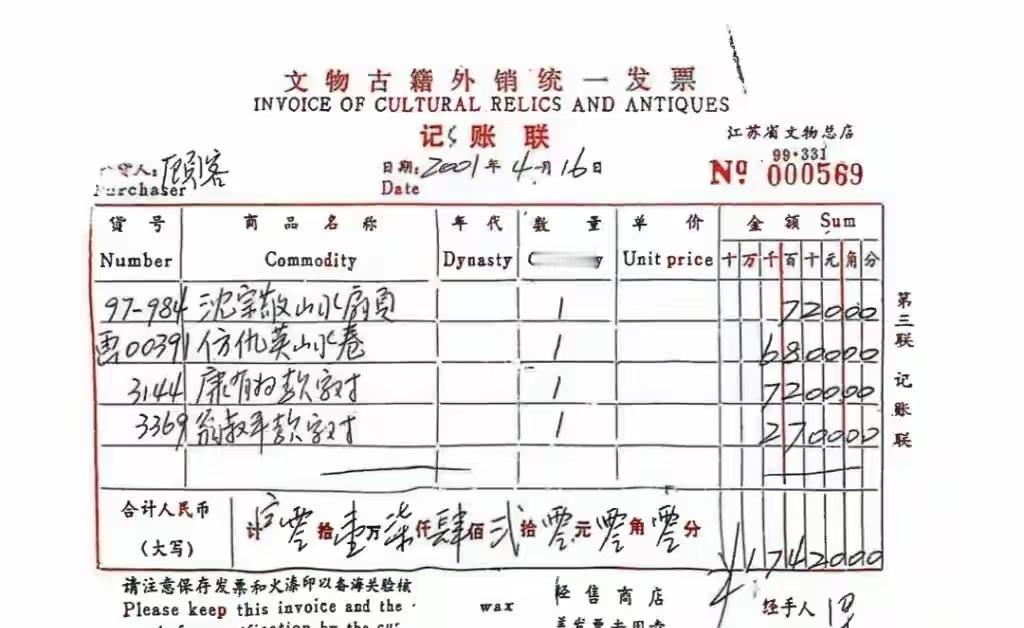 文物古籍外销统一发票
INVOICE OF CULTURAL RELICS AND ANTIQUES
记账联
江苏省文物总店
货人: 顾客
日期: 2001年4月16日
99·331
Purchaser
Date
Nº 000569
货号 商品名称 年代 数量 单价 金额 Sum
Number Commodity Dynasty Unit price 十万千百十元角分
97-984 沈宗敬山水扇页 1 72000
00391 仿仇英山水卷 1 680000
3144 康有为款字对 1 720000
3369 翁叔平款字对 1 270000
第三联 记账联
合计人民币 计 零拾壹万柒仟肆佰贰拾零元零角零分
(大写) 1742000
请注意保存发票和火漆印以备海关验核 经售商店 经手人
Please keep this invoice and the wax